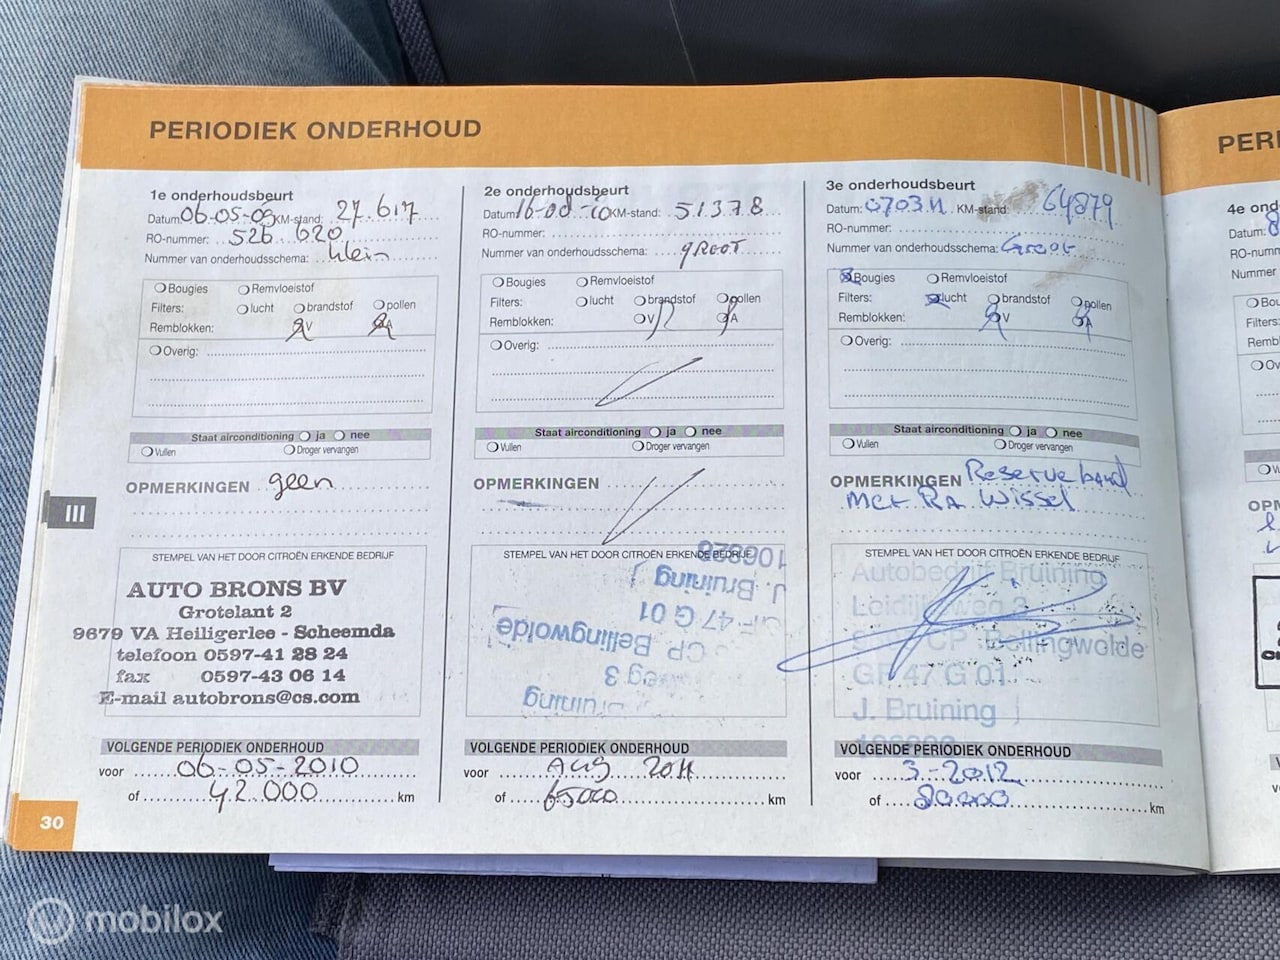 PERIODIEK ONDERHOUD
1e onderhoudsbeurt
Datum: 06-05-09 KM-stand: 27.617
RO-nummer: 526 620
Nummer van onderhoudsschema: klein
Bougies Remvloeistof
Filters: lucht brandstof pollen
Remblokken: V A
Overig:
Staat airconditioning ja nee
Vullen Droger vervangen
OPMERKINGEN geen
STEMPEL VAN HET DOOR CITROËN ERKENDE BEDRIJF
AUTO BRONS BV
Grotelant 2
9679 VA Heiligerlee - Scheemda
telefoon 0597-41 28 24
fax 0597-43 06 14
E-mail autobrons@cs.com
VOLGENDE PERIODIEK ONDERHOUD
voor 06-05-2010
of 42.000 km
2e onderhoudsbeurt
Datum: 16-08-10 KM-stand: 51378
RO-nummer:
Nummer van onderhoudsschema: gROOT
Bougies Remvloeistof
Filters: lucht brandstof pollen
Remblokken: V A
Overig:
Staat airconditioning ja nee
Vullen Droger vervangen
OPMERKINGEN
STEMPEL VAN HET DOOR CITROËN ERKENDE BEDRIJF
J. Bruining
47 G 01
CP Bellingwolde
weg 3
Bruining
VOLGENDE PERIODIEK ONDERHOUD
voor Aug 2011
of 65000 km
3e onderhoudsbeurt
Datum: 070311 KM-stand: 64879
RO-nummer:
Nummer van onderhoudsschema: Groot
Bougies Remvloeistof
Filters: lucht brandstof pollen
Remblokken: V A
Overig:
Staat airconditioning ja nee
Vullen Droger vervangen
OPMERKINGEN Reserveband
met RA Wissel
STEMPEL VAN HET DOOR CITROËN ERKENDE BEDRIJF
Autobedrijf Bruining
weg 3
CP Bellingwolde
GF 47 G 01
J. Bruining
VOLGENDE PERIODIEK ONDERHOUD
voor 3-2012
of 80.000 km
III
30
PERI
4e ond
Datum: 8
RO-num
Nummer
Bou
Filters:
Remb
Ov
OPM
mobilox